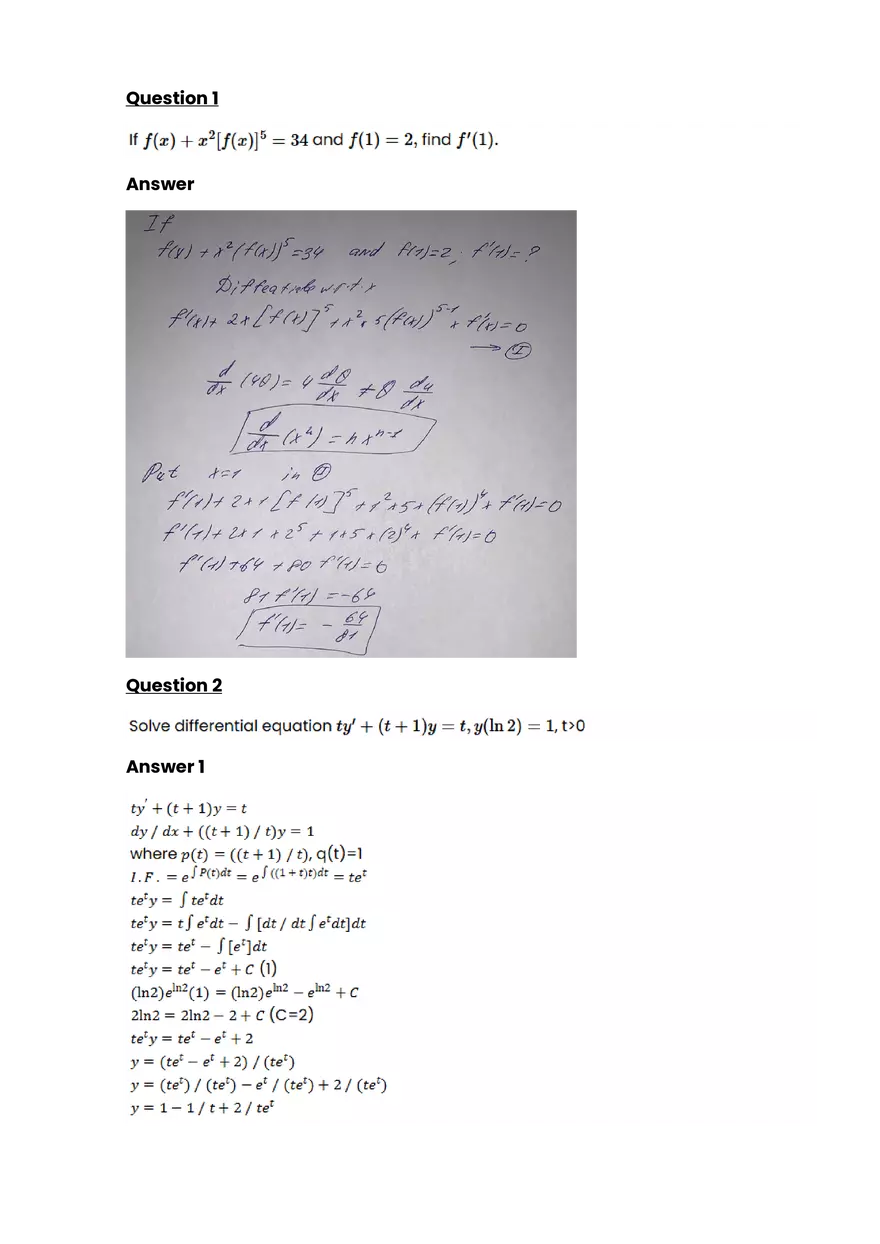 Question 1
If f(x) + x²[f(x)]⁵ = 34 and f(1) = 2, find f′(1).
Answer
If
f(x) + x²(f(x))⁵=34 and f(1)=2; f'(1)=?
w.r.t.x
f'(x)+ 2x[f(x)]⁵+x²×5(f(x))⁵⁻¹× f'(x)=0
→ Ⓘ
d/dx (uθ)= u dθ/dx + θ du/dx
d/dx (xⁿ) = n xⁿ⁻¹
Put x=1 in Ⓘ
f'(1)+2×1[f(1)]⁵+1²×5×(f(1))⁴× f'(1)=0
f'(1)+2×1×2⁵+1×5×(2)⁴× f'(1)=0
f'(1)+64+80 f'(1)=0
81 f'(1) =-64
f'(1)= - 64/81
Question 2
Solve differential equation ty′ + (t + 1)y = t, y(ln 2) = 1, t>0
Answer 1
ty′ + (t + 1)y = t
dy / dx + ((t + 1) / t)y = 1
where p(t) = ((t + 1) / t), q(t)=1
I.F. = e^∫P(t)dt = e^∫((1 + t)t)dt = te^t
te^t y = ∫te^t dt
te^t y = t∫e^t dt − ∫[dt / dt∫e^t dt]dt
te^t y = te^t − ∫[e^t]dt
te^t y = te^t − e^t + C (1)
(ln2)e^ln2(1) = (ln2)e^ln2 − e^ln2 + C
2ln2 = 2ln2 − 2 + C (C=2)
te^t y = te^t − e^t + 2
y = (te^t − e^t + 2) / (te^t)
y = (te^t) / (te^t) − e^t / (te^t) + 2 / (te^t)
y = 1 − 1 / t + 2 / te^t